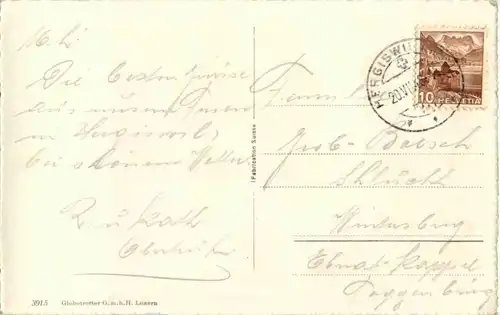 M. L.
Die besten Grüsse
aus unsern Ferien
in Hergiswil
bei schönem Wetter
R. u. Kath
Fabrication Suisse
HERGISWIL
20.VII
10 HELVETIA
Fam
Grob-Bötsch
Schlucht
Wintersberg
Ebnat-Kappel
Toggenburg
3915 Globetrotter G.m.b.H. Luzern